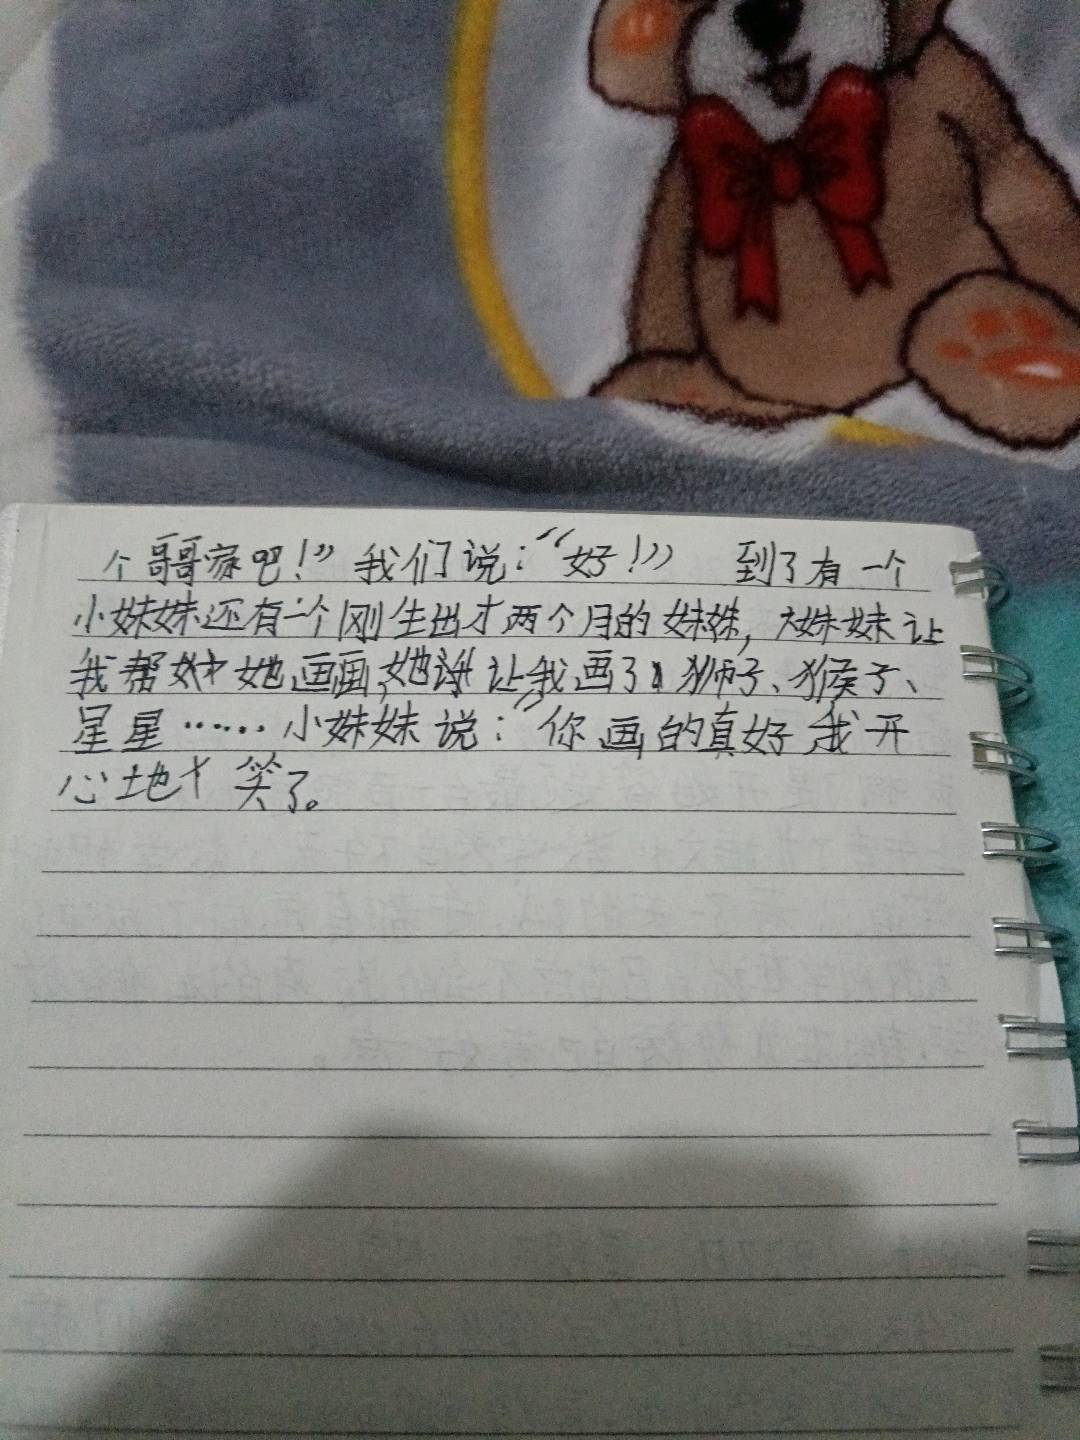 个哥哥家吧！”我们说：“好！” 到了有一个
小妹妹还有一个刚生出才两个月的妹妹，大妹妹让
我帮她画画，她让我画了狮子、猴子、
星星……小妹妹说：“你画的真好，我开
心地笑了。